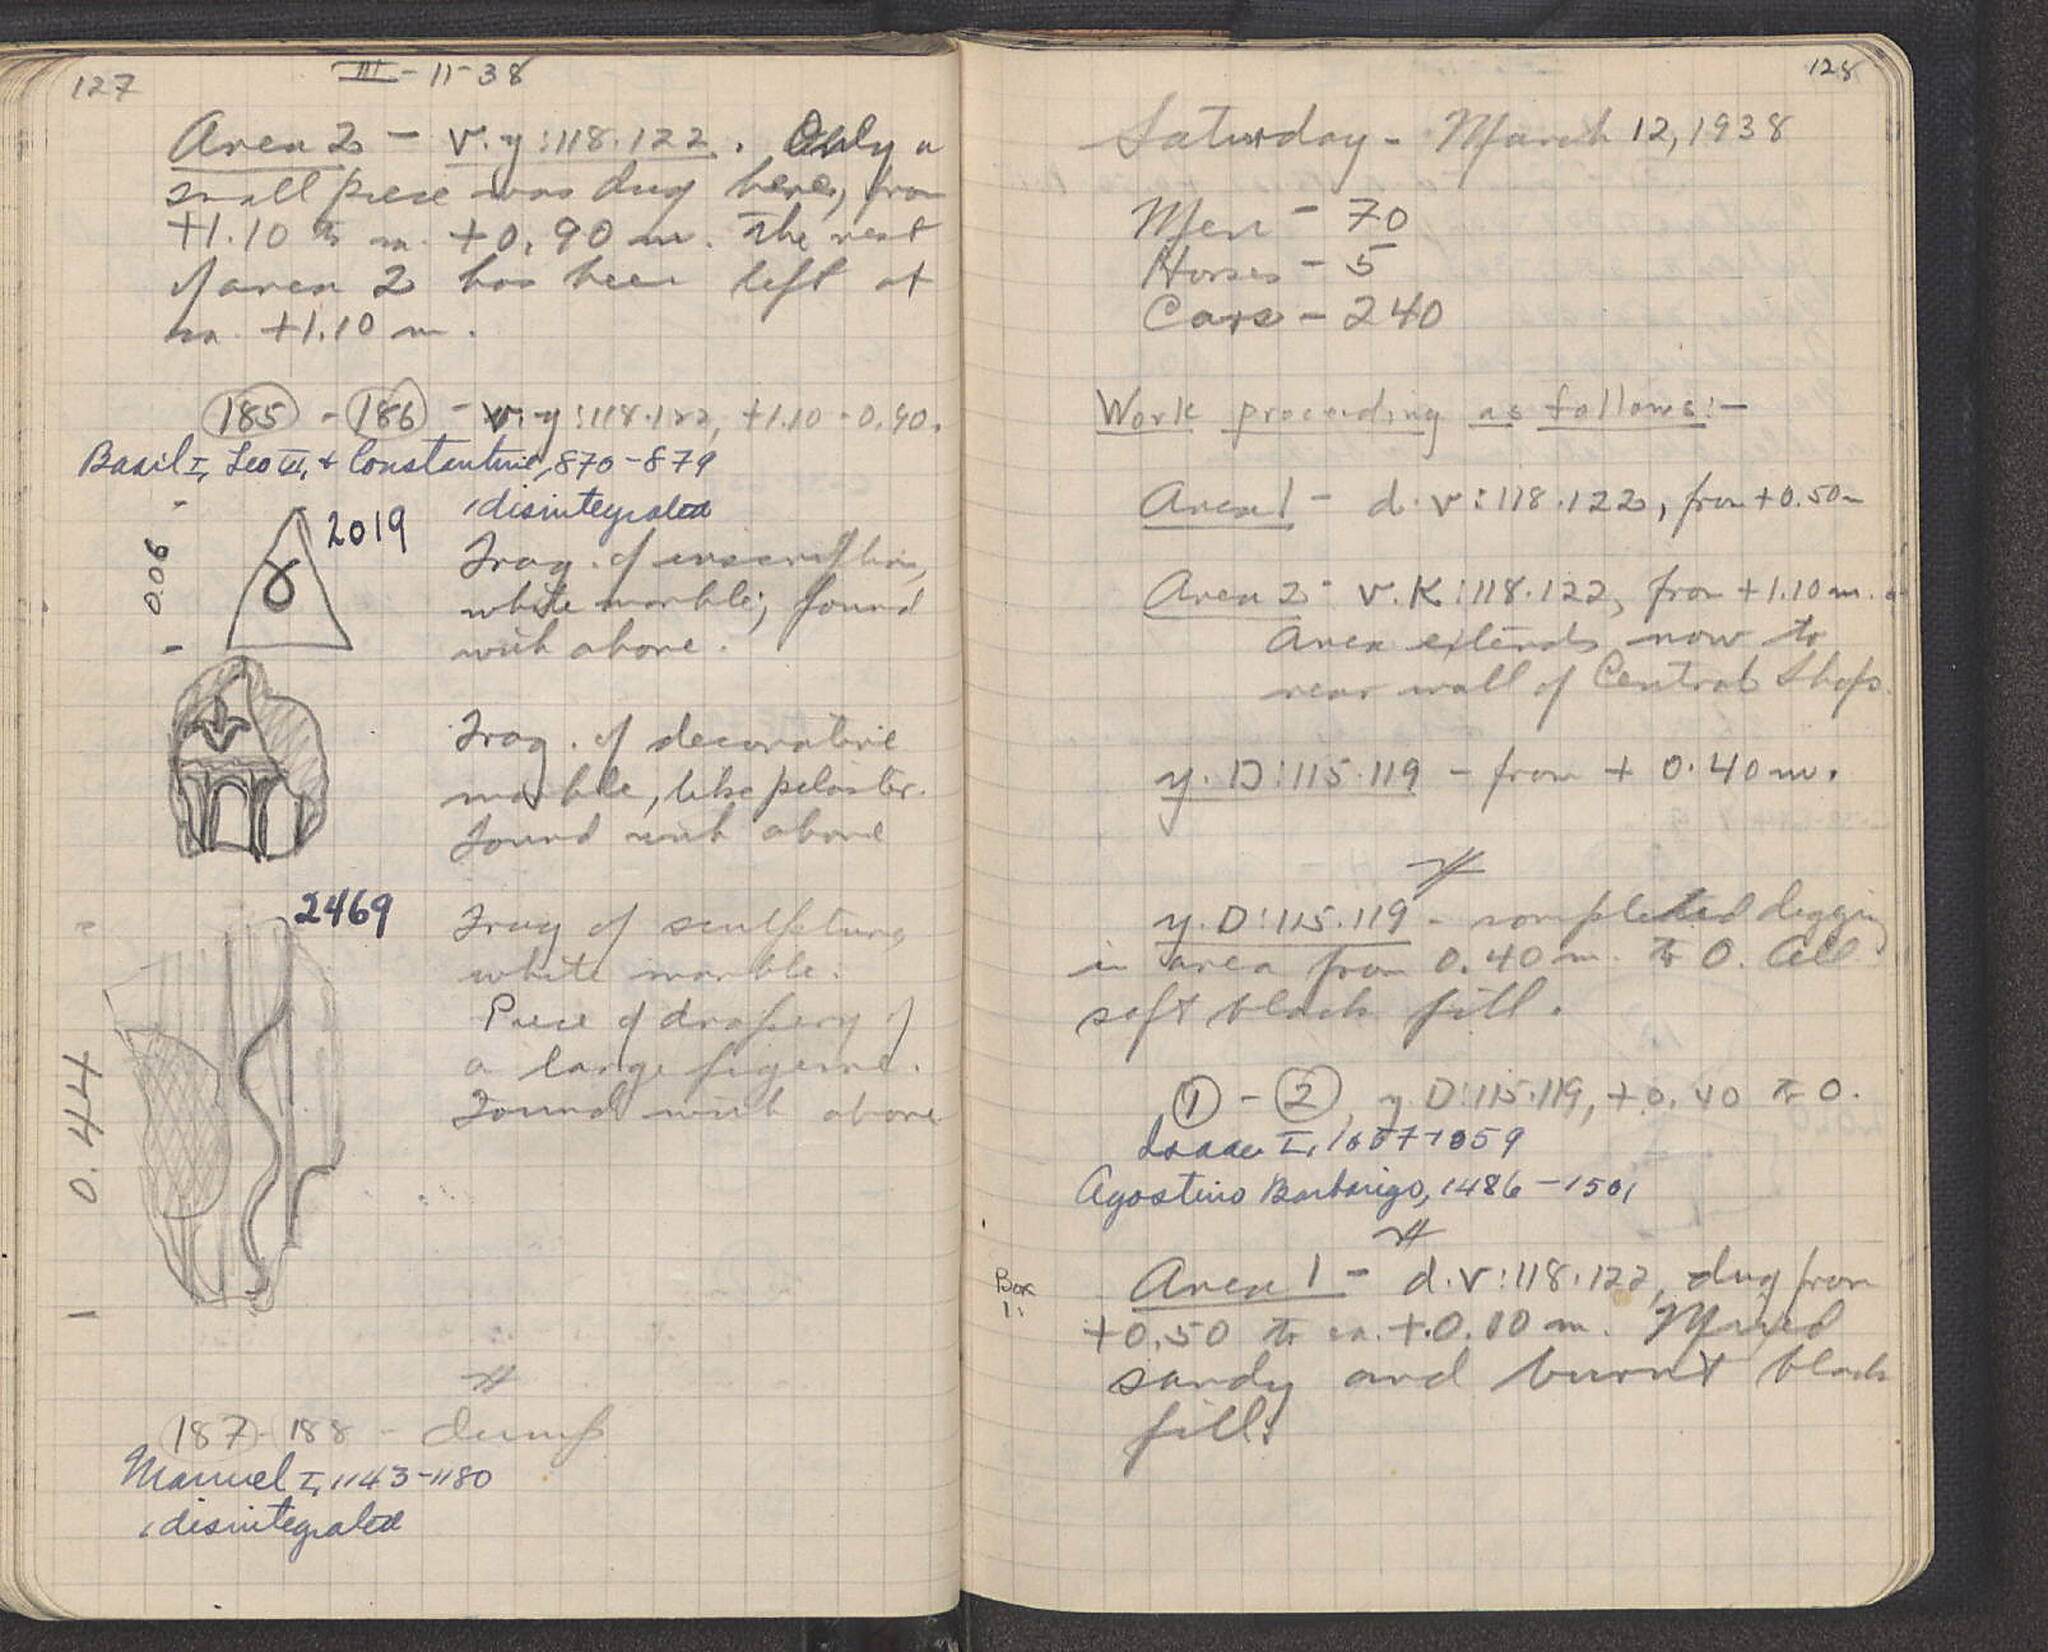 127
III-11-38
Area 2 - v.y:118.122. Only a
small piece was dug here, from
+1.10 to ca. +0.90 m. The rest
of area 2 has been left at
ca. +1.10 m.
185 - 186 - v.y:118.122, +1.10-0.90.
Basil I, Leo VI, + Constantine, 870-879
1 disintegrated
2019
0.06
Frag. of inscription,
white marble; found
with above.
Frag. of decorative
marble, like pilaster.
Found with above
2469
0.44
Frag of sculpture,
white marble.
Piece of drapery of
a large figure.
Found with above
187-188 - dump
Manuel I, 1143-1180
1 disintegrated
128
Saturday - March 12, 1938
Men - 70
Horses - 5
Cars - 240
Work proceeding as follows:-
Area 1 - d.v:118.122, from +0.50m
Area 2 - v.K:118.122, from +1.10 m.
Area extends now to
rear wall of Central Shops.
y.D:115.119 - from + 0.40 m.
y.D:115.119 - completed digging
in area from 0.40 m. to 0. All
soft black fill.
1 - 2, y.D:115.119, +0.40 to 0.
Isaac I, 1057-1059
Agostino Barbarigo, 1486-1501
Box
1:
Area 1 - d.v:118.122, dug from
+0.50 to ca. +0.10 m. Mixed
sandy and burnt black
fill: